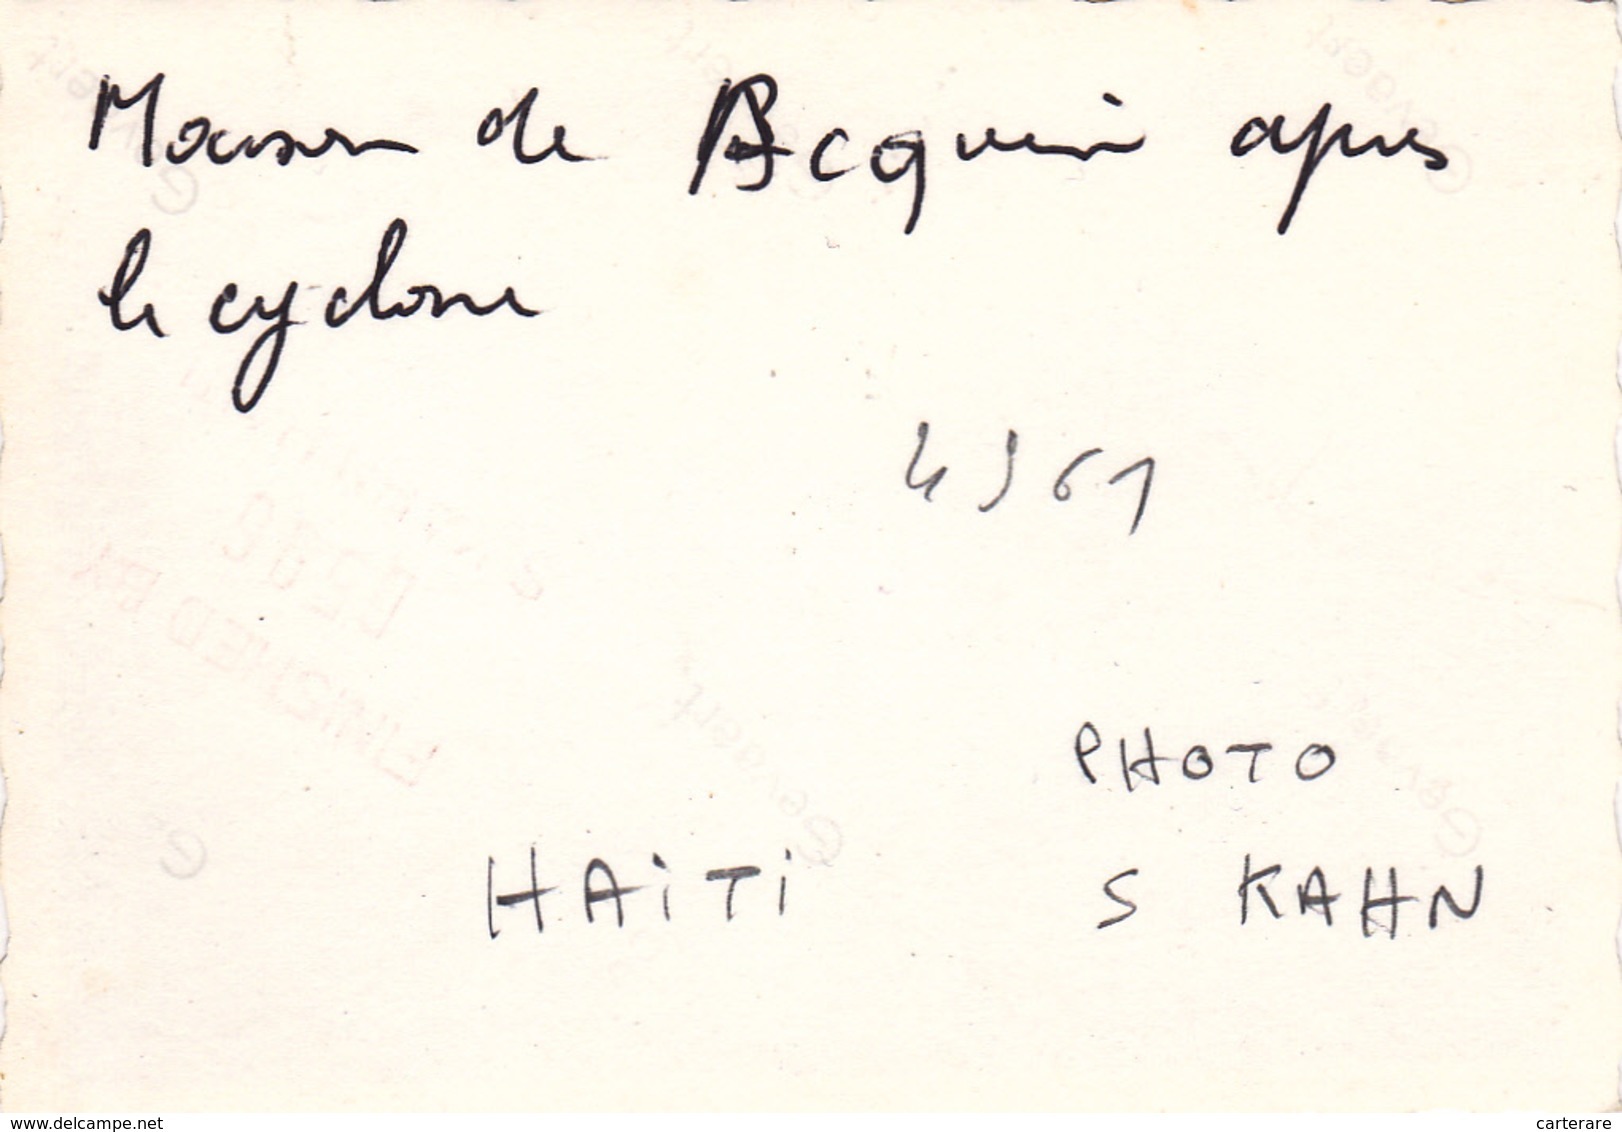 Maison de Acquin après
le cyclone
4961
PHOTO
HAiTi S KAHN
Gevaert
Gevaert
Gevaert
FINISHED BY
www.delcampe.net carterare